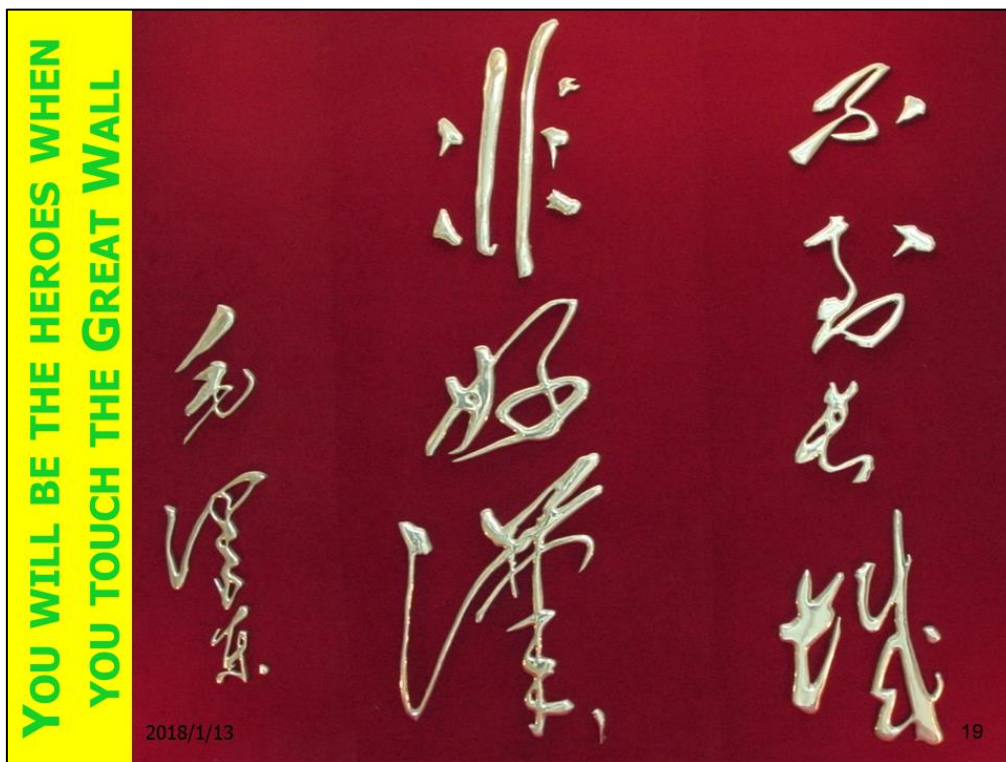 YOU WILL BE THE HEROES WHEN
YOU TOUCH THE GREAT WALL
不到长城
非好漢
毛澤東
2018/1/13
19